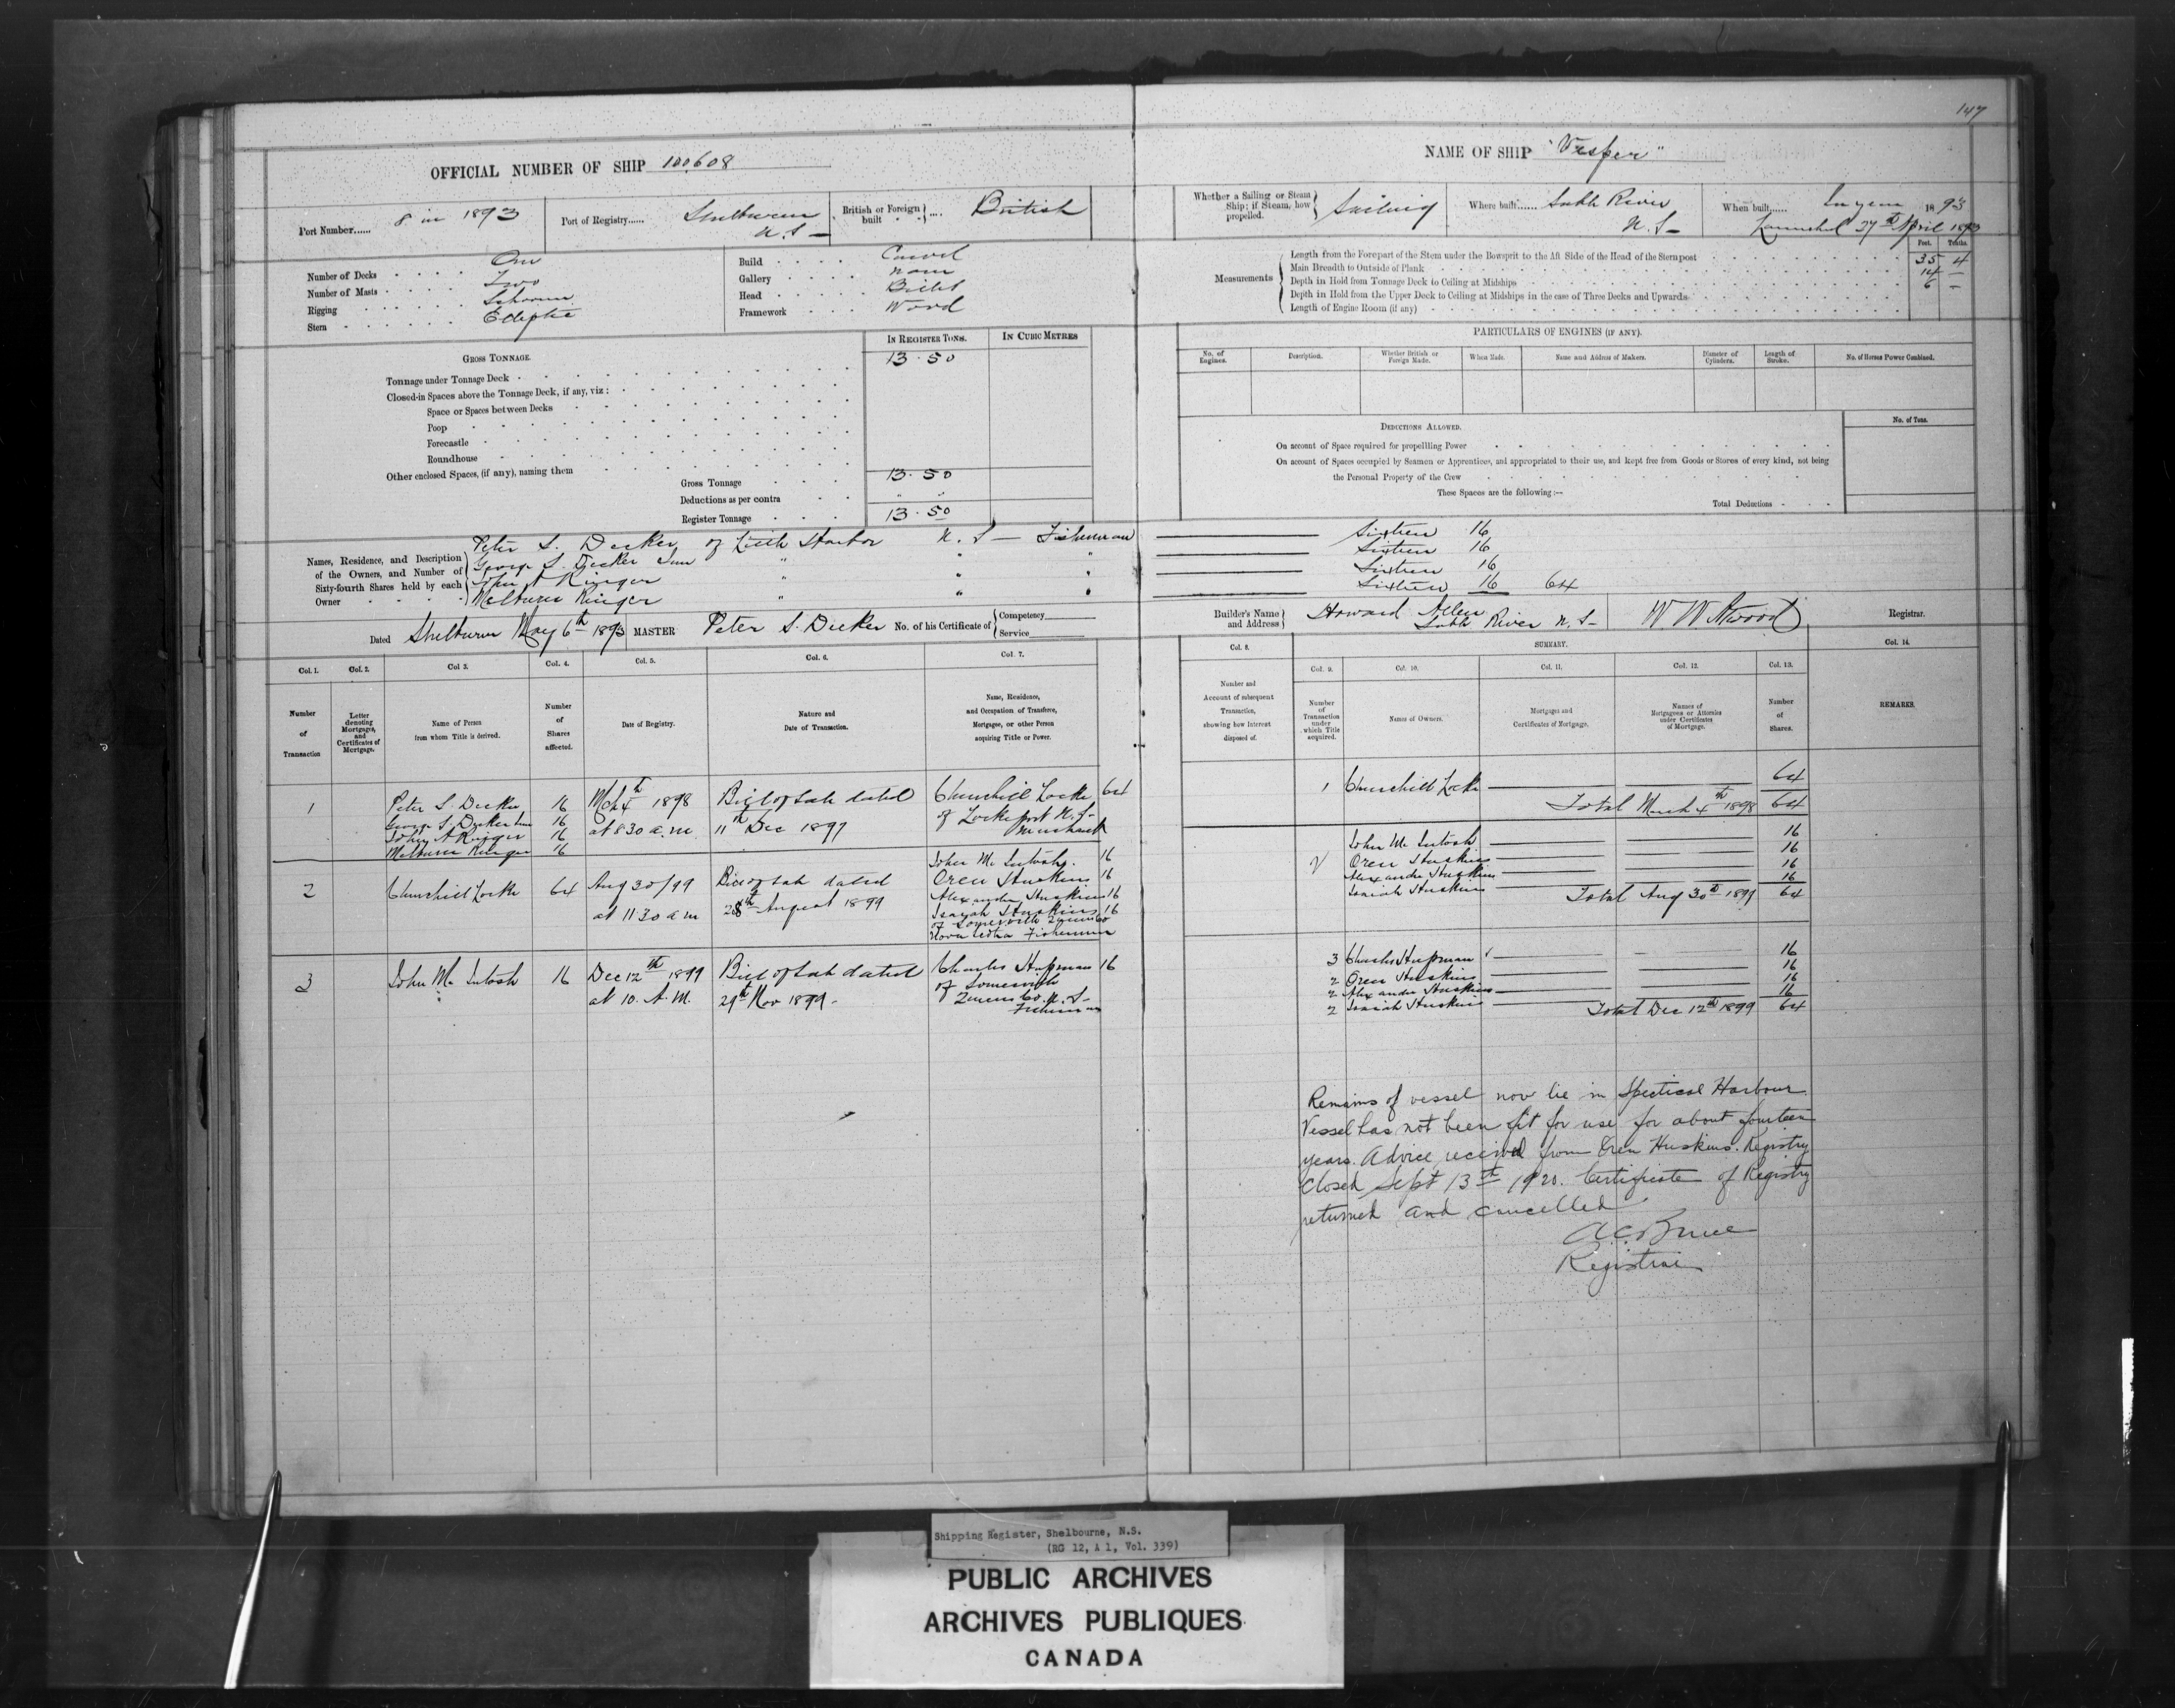 147
OFFICIAL NUMBER OF SHIP 100,608
NAME OF SHIP "Vesper"
Port Number...... 8 in 1893
Port of Registry...... Shelburne N.S—
British or Foreign built .... British
Whether a Sailing or Steam Ship; if Steam, how propelled. Sailing
Where built...... Sable River N.S—
When built...... In year 1893
Launched 27th April 1893
Number of Decks One
Number of Masts Two
Rigging Schooner
Stern Elliptic
Build Carvel
Gallery None
Head Billet
Framework Wood
Measurements
Feet. Tenths.
Length from the Forepart of the Stem under the Bowsprit to the Aft Side of the Head of the Sternpost 35 4
Main Breadth to Outside of Plank 14 —
Depth in Hold from Tonnage Deck to Ceiling at Midships 6 —
Depth in Hold from the Upper Deck to Ceiling at Midships in the case of Three Decks and Upwards
Length of Engine Room (if any)
GROSS TONNAGE.
IN REGISTER TONS.
IN CUBIC METRES
Tonnage under Tonnage Deck 13.50
Closed-in Spaces above the Tonnage Deck, if any, viz:
Space or Spaces between Decks
Poop
Forecastle
Roundhouse
Other enclosed Spaces, (if any), naming them
Gross Tonnage 13.50
Deductions as per contra " "
Register Tonnage 13.50
PARTICULARS OF ENGINES (IF ANY).
No. of Engines.
Description.
Whether British or Foreign Made.
When Made.
Name and Address of Makers.
Diameter of Cylinders.
Length of Stroke.
No. of Horses Power Combined.
DEDUCTIONS ALLOWED.
No. of Tons.
On account of Space required for propelling Power
On account of Spaces occupied by Seamen or Apprentices, and appropriated to their use, and kept free from Goods or Stores of every kind, not being
the Personal Property of the Crew
These Spaces are the following:—
Total Deductions
Names, Residence, and Description of the Owners, and Number of Sixty-fourth Shares held by each Owner
Peter S. Decker of Little Harbor N.S— Fisherman Sixteen 16
George S. Decker Senr " " " Sixteen 16
John A Ringer " " " Sixteen 16
Melburne Ringer " " " Sixteen 16 64
Dated Shelburne May 6th 1893 MASTER Peter S. Decker No. of his Certificate of Competency Service
Builder's Name and Address Howard Allen Sable River N.S— W W Atwood Registrar.
Col. 1. Col. 2. Col 3. Col. 4. Col. 5. Col. 6. Col. 7.
Number of Transaction
Letter denoting Mortgages, and Certificates of Mortgage.
Name of Person from whom Title is derived.
Number of Shares affected.
Date of Registry.
Nature and Date of Transaction.
Name, Residence, and Occupation of Transferee, Mortgagee, or other Person acquiring Title or Power.
Col. 8. SUMMARY. Col. 14.
Col. 9. Col. 10. Col. 11. Col. 12. Col. 13.
Number and Account of subsequent Transaction, showing how Interest disposed of.
Number of Transaction under which Title acquired.
Names of Owners.
Mortgages and Certificates of Mortgage.
Names of Mortgagees or Attornies under Certificates of Mortgage.
Number of Shares.
REMARKS.
1
Peter S. Decker 16
George S. Decker Senr 16
John A Ringer 16
Melburne Ringer 16
Mch 4th 1898
at 8 30 a.m
Bill of Sale dated
11th Dec 1897
Churchill Locke 64
of Lockeport N.S—
Merchant
2
Churchill Locke 64
Aug 30/99
at 11 30 a m
Bill of Sale dated
28th August 1899
John Mc Intosh. 16
Oren Huskins 16
Alexander Huskins 16
Isayah Huskins 16
of Somerville Queens Co
Nova Scotia Fishermen
3
John Mc Intosh 16
Dec 12th 1899
at 10. A.M.
Bill of Sale dated
29th Nov 1899-
Charles Hupman 16
of Somerville
Queens Co. N.S—
Fisherman
1 Churchill Locke 64
Total March 4th 1898 64
2
John Mc Intosh 16
Oren Huskins 16
Alexander Huskins 16
Isaiah Huskins 16
Total Aug 30th 1899 64
3 Charles Hupman 16
2 Oren Huskins 16
2 Alexander Huskins 16
2 Isaiah Huskins 16
Total Dec 12th 1899 64
Remains of vessel now lie in Spectical Harbour.
Vessel has not been fit for use for about fourteen
years. Advice received from Oren Huskins. Registry
Closed Sept 13th 1920. Certificate of Registry
returned and cancelled
A.C. Bruce
Registrar
Shipping Register, Shelbourne, N.S.
(RG 12, A 1, Vol. 339)
PUBLIC ARCHIVES
ARCHIVES PUBLIQUES
CANADA